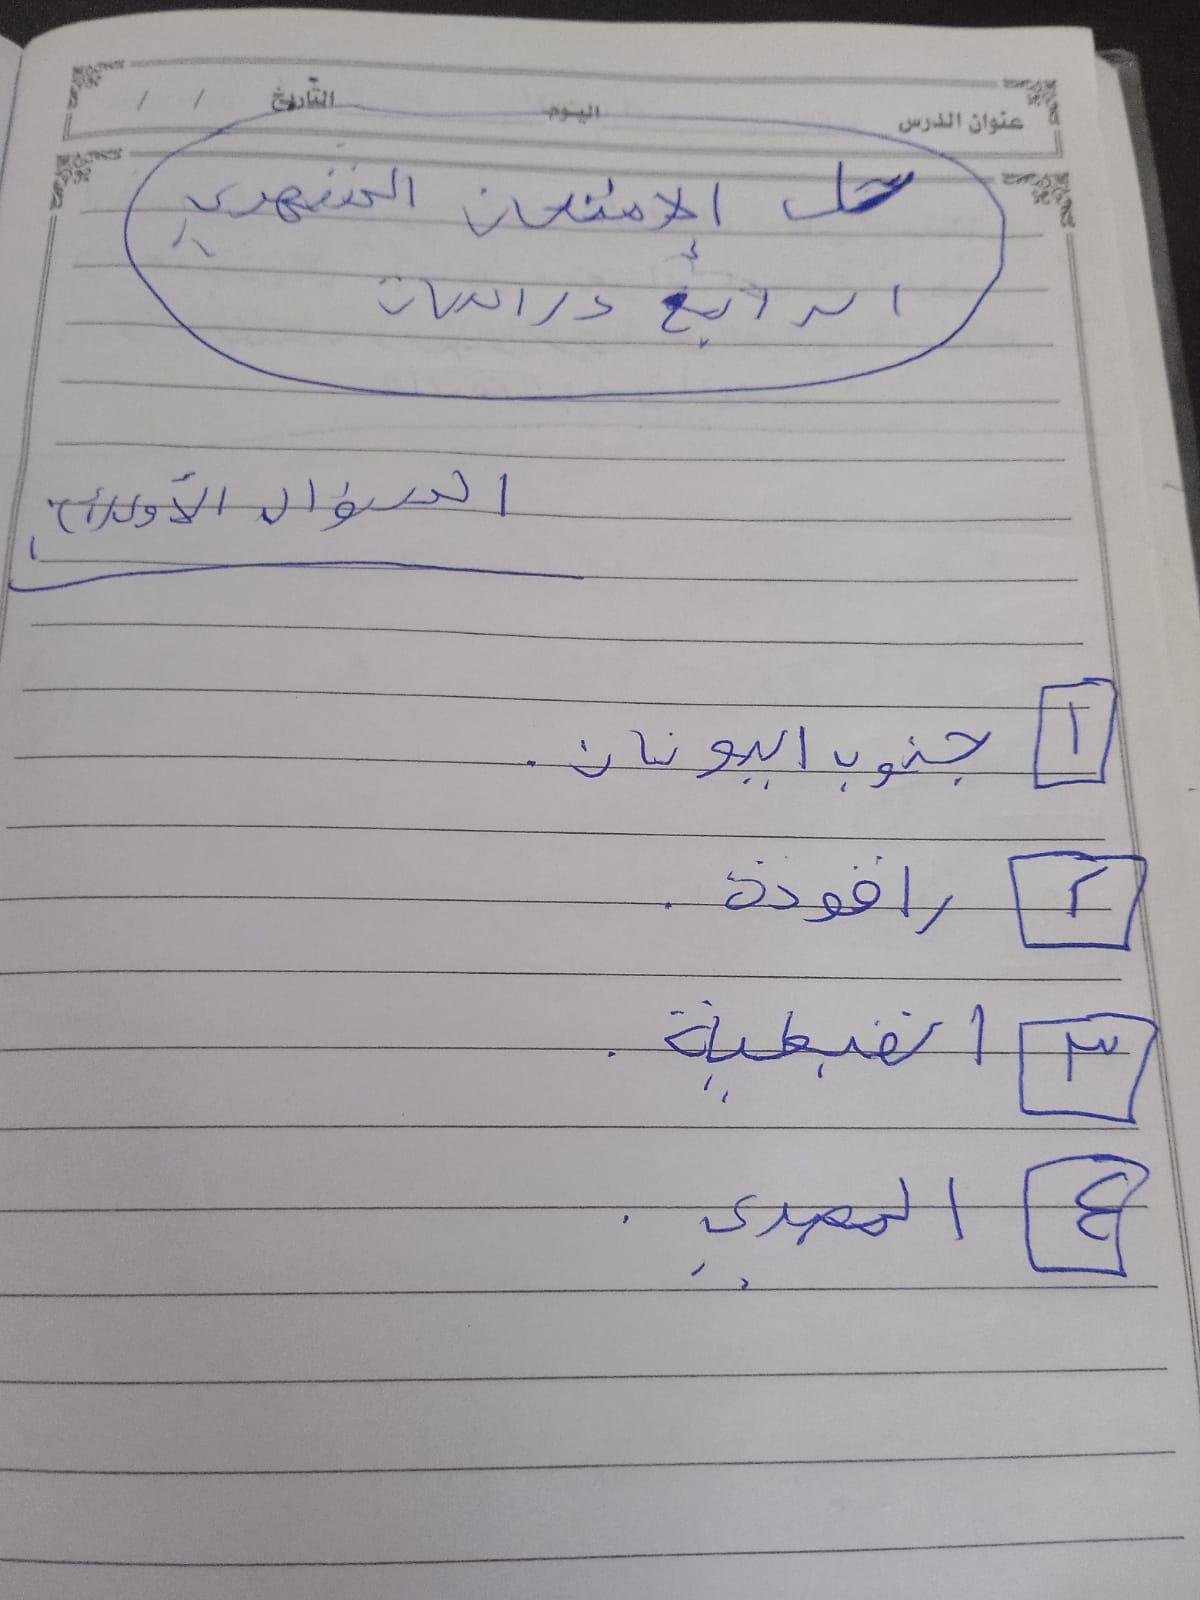 عنوان الدرس اليوم التاريخ / /
حل الامتحان الشهري
الرابع دراسات
السؤال الأول
١ جنوب اليونان .
٢ راقودة .
٣ القبطية .
٤ المصري .